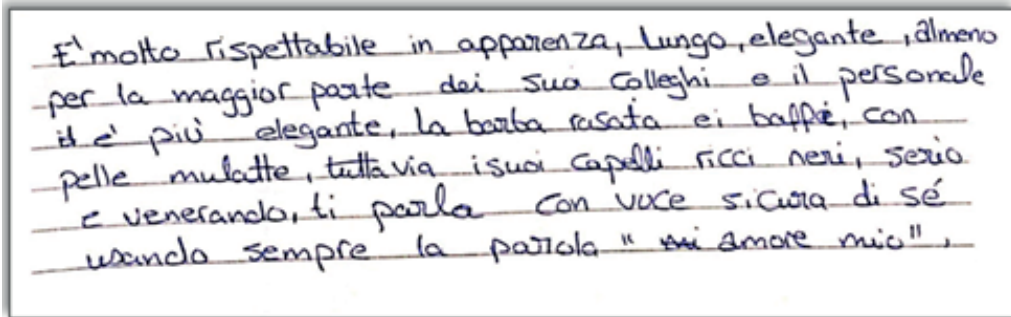 E' molto rispettabile in apparenza, lungo, elegante, almeno
per la maggior parte dei sua colleghi e il personale
è più elegante, la barba rasata ei baffi, con
pelle mulatte, tuttavia isuoi capelli ricci neri, serio
e venerando, ti parla con voce sicura di sé
usando sempre la parola " amore mio".